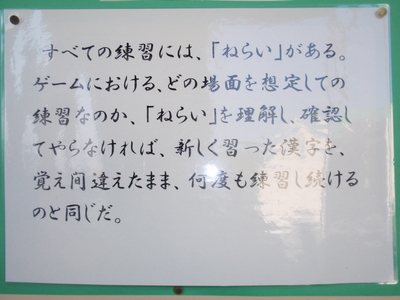 すべての練習には、「ねらい」がある。
ゲームにおける、どの場面を想定しての
練習なのか、「ねらい」を理解し、確認し
てやらなければ、新しく習った漢字を、
覚え間違えたまま、何度も練習し続ける
のと同じだ。